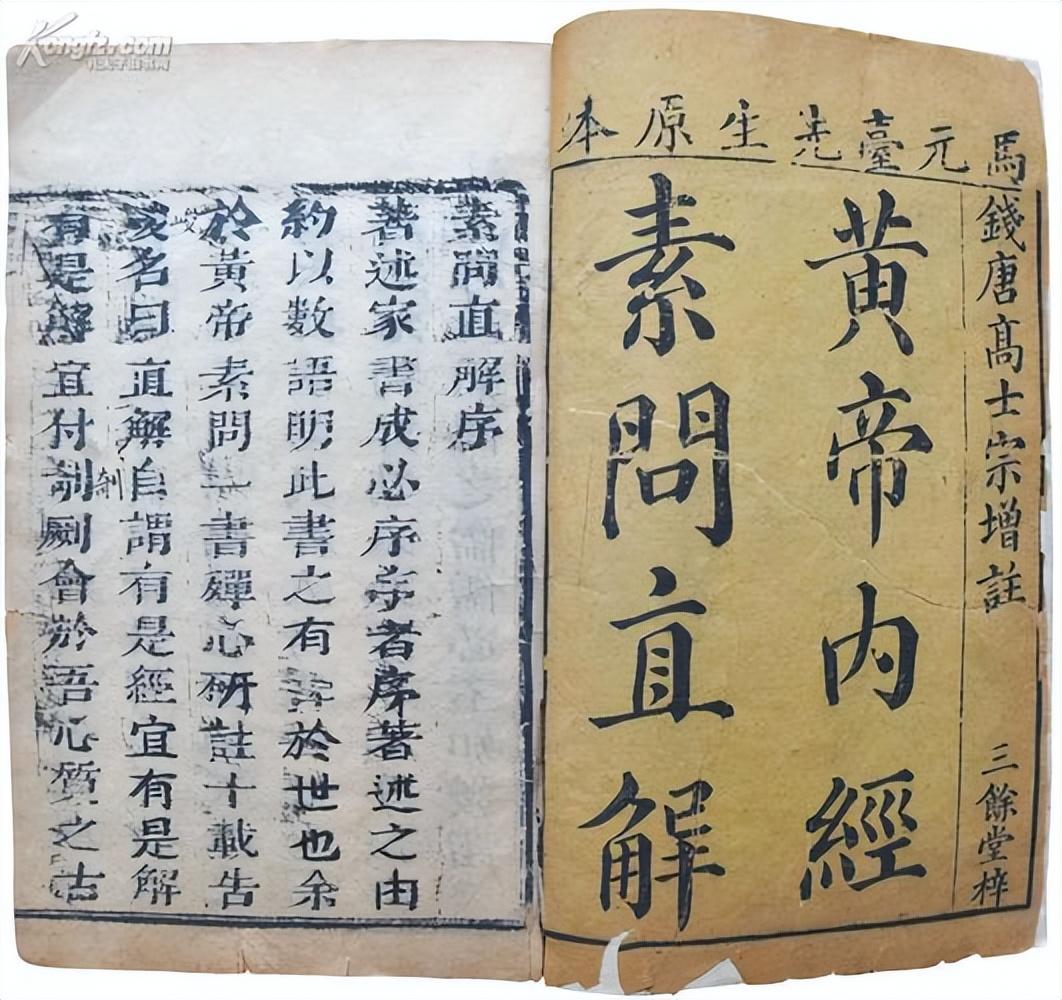 馬元臺先生原本
錢唐高士宗增註
三餘堂梓
黃帝內經
素問直解
素問直解序
著述家書成必序序者序著述之由
約以數語明此書之有 於世也余
於黃帝素問一書殫心研註十載告
竣名曰直解自謂有是經宜有是解
有是解宜付剞劂會於吾心質之古
竣
剞
Kongfz.com
孔夫子旧书网